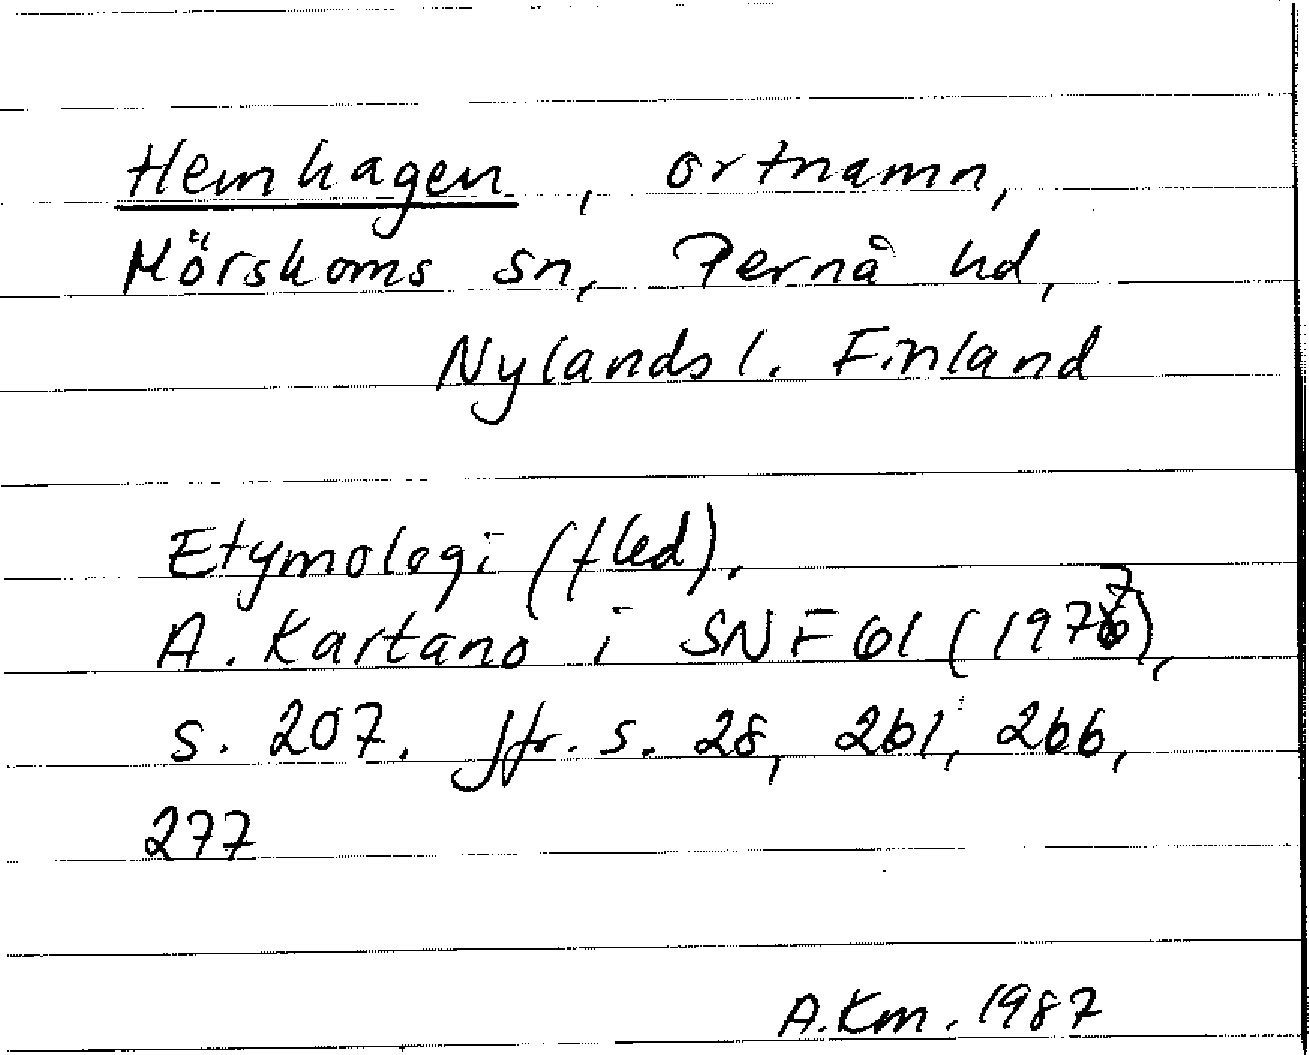 Hemhagen, ortnamn,
Mörskoms sn, Pernå hd,
Nylands l. Finland
Etymologi (fled).
A. Kartano i SNF 61 (1977),
s. 207. Jfr. s. 28, 261, 266,
277
A.Km. 1987